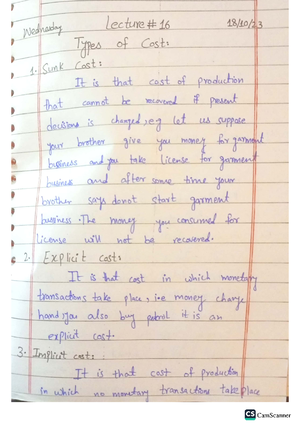 Wednesday Lecture # 16 18/10/23
Types of Cost:
1. Sunk Cost:
It is that cost of production
that cannot be recovered if present
decisions is changed, e.g let us suppose
your brother give you money for garment
business and you take license for garment
business and after some time your
brother says donot start garment
business. The money you consumed for
license will not be recovered.
2. Explicit cost:
It is that cost in which monetary
transactions take place, i.e money change
hand, you also buy petrol it is an
explicit cost.
3. Implicit cost:
It is that cost of production
in which no monetary transactions take place
CS CamScanner